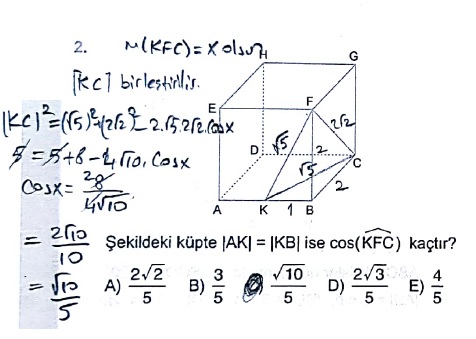 2. m(KFC)=x olsun
[KC] birleştirilir.
|KC|²=(√5)²+(2√2)²-2.√5.2√2.cosx
5 = 5+8-4√10.cosx
cosx = 2 8 / 4√10
= 2√10 / 10
= √10 / 5
H G
E F
D C
A K B
√5 2 2√2
√5 2
1
Şekildeki küpte |AK| = |KB| ise cos(KFC) kaçtır?
A) 2√2/5 B) 3/5 √10/5 D) 2√3/5 E) 4/5